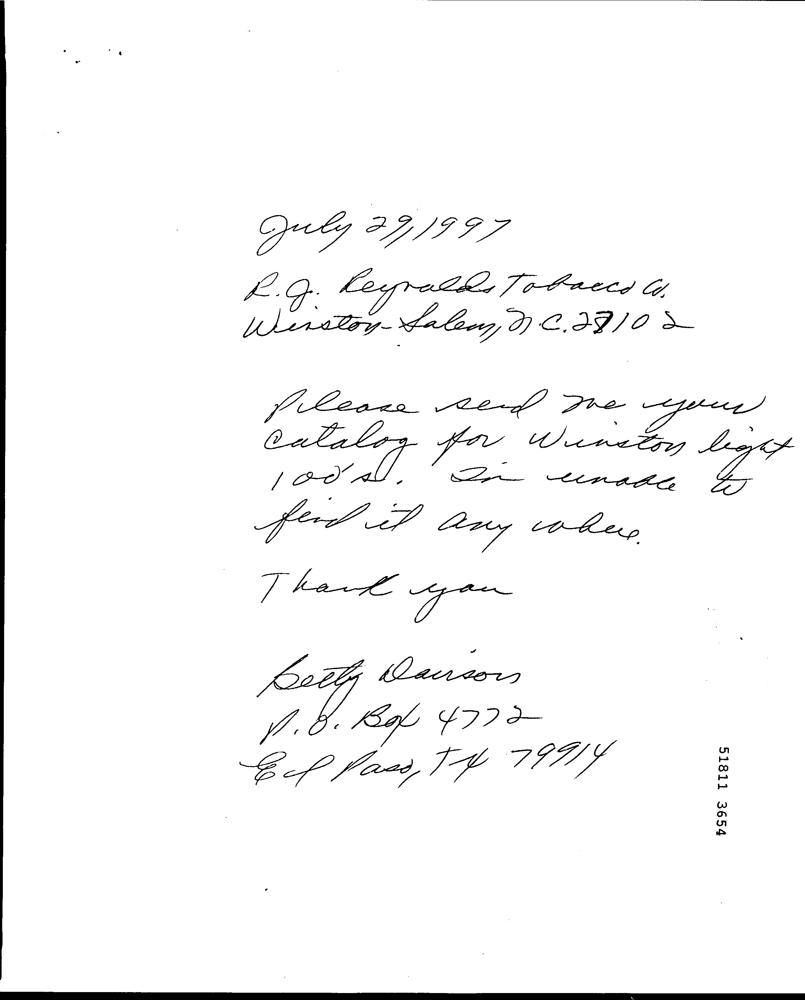 July 29, 1997
R.J. Reynolds Tobacco Co.
Winston-Salem, N.C. 27102
Please send me your
catalog for Winston light
100's. Im unable to
find it any where.
Thank you
Betty
P.O. Box 4772
El Paso, TX 79914
51811 3654